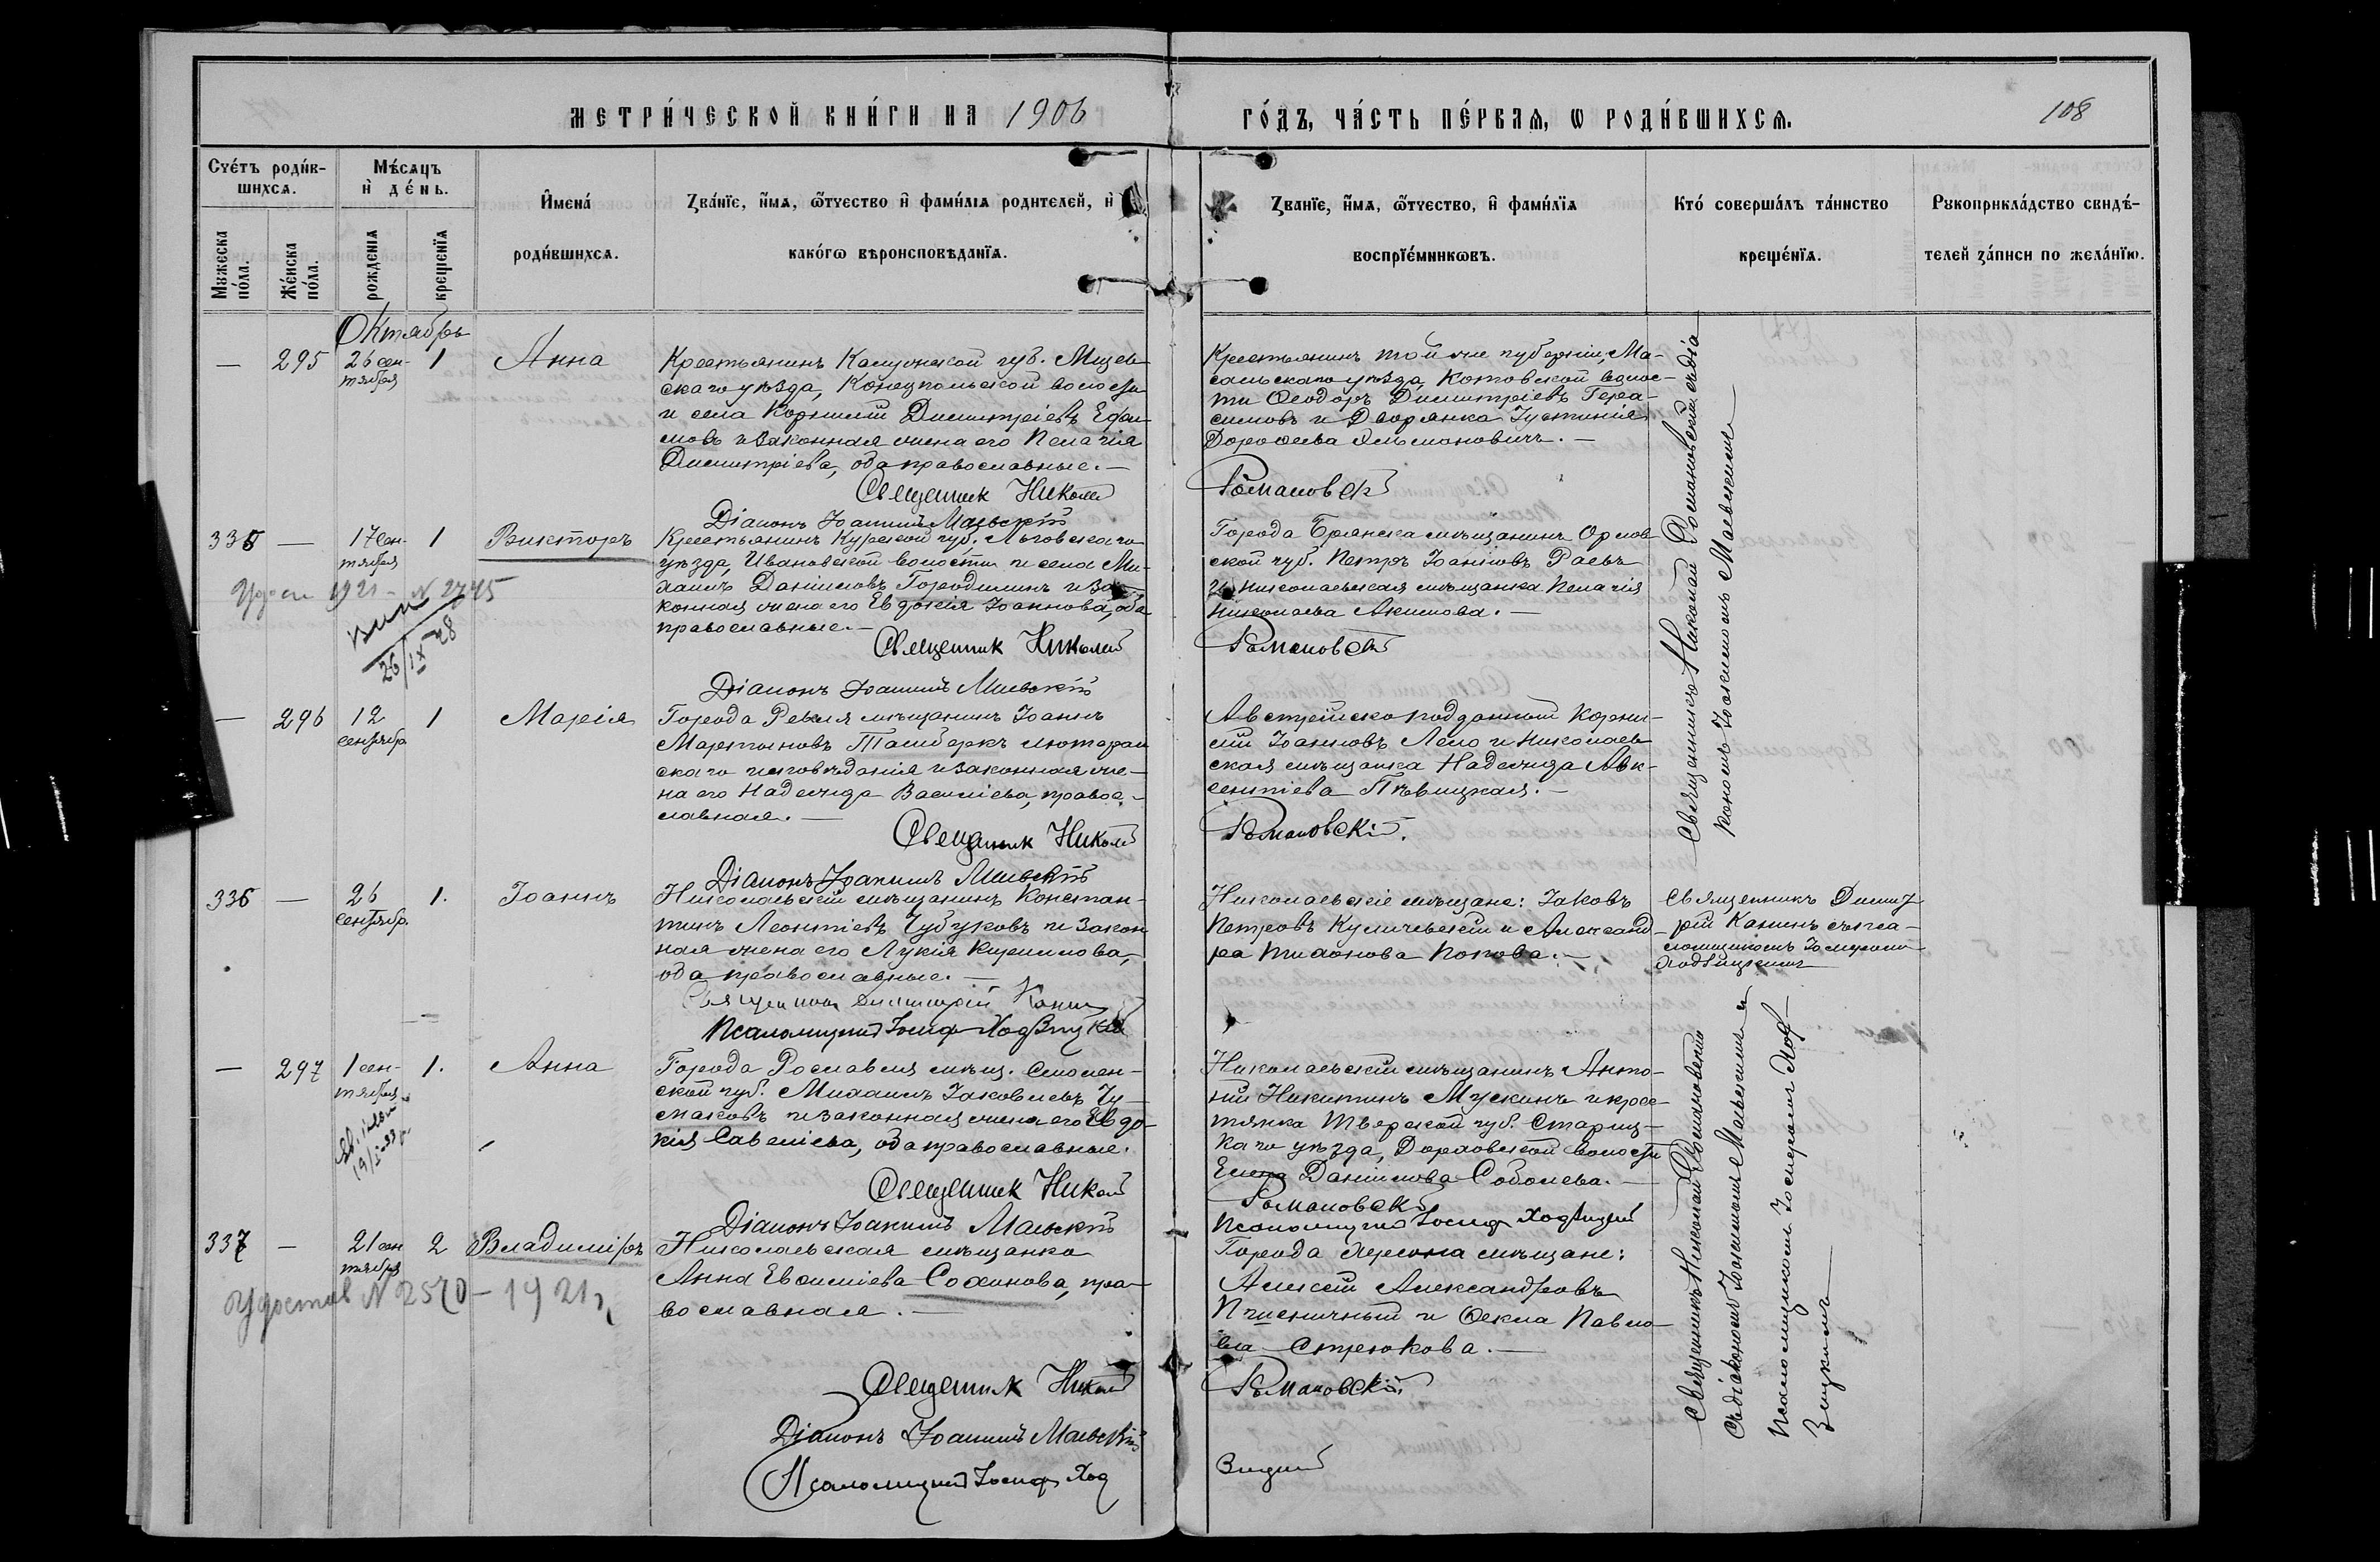 МЕТРИ́ЧЕСКОЙ КНИ́ГИ НА 1906
ГО́ДЪ, ЧА́СТЬ ПЕ́РВАѦ, Ѡ РОДИ́ВШИХСѦ.
108
Сче́тъ роди́в-
шихсѧ.
Мѣ́сѧцъ
и҆ де́нь.
Мꙋжеска
по́ла.
Же́нска
по́ла.
рожденїѧ
крещенїѧ
И҆мена́
роди́вшихсѧ.
Зва́нїе, и҆́мѧ, ѻ҆́тчество и҆ фами́лїѧ родителей, и҆
како́гѡ вѣроисповѣданїѧ.
Званїе, и҆́мѧ, ѻ҆́тчество, и҆ фами́лїѧ
воспрїе́мникѡвъ.
Кто́ соверша́лъ та́инство
креще́нїѧ.
Рꙋкоприкла́дство свидѣ́-
телей за́писи по жела́нїю.
Октябрь
— 295 26 сен-
тября 1 Анна
Крестьянинъ Калужской губ. Мещев-
скаго уѣзда, Конецпольской волости
и села Корнилій Димитріевъ Ефи-
мовъ и законная жена его Пелагія
Димитріева, оба православные.—
Священник Николай
Діаконъ Іоакимъ Маевскій
Крестьянинъ той же губерніи, Ма-
сальскаго уѣзда, Котовской волос-
ти Ѳеодоръ Димитріевъ Гера-
симовъ и Дворянка Іустинія
Дороѳеева .—
Романовскій
Священникъ Николай Романовскій съ діа-
кономъ Іоакимомъ Маевскимъ
335 — 17 сен-
тября 1 Викторъ
1921 - N 2745
26/IX 28
Крестьянинъ Курской губ. Льговскаго
уѣзда, Ивановской волости и села Ми-
хаилъ Даніиловъ Городилинъ и за-
конная жена его Евдокія Іоаннова, оба
православные.—
Священник Николай
Діаконъ Іоакимъ Маевскій
Города Брянска мѣщанинъ Орлов-
ской губ. Петръ Іоанновъ Раевъ
и Николаевская мѣщанка Пелагія
Николаева Акимова.—
Романовскій
— 296 12
сентябр. 1 Марія
Города Ревеля мѣщанинъ Іоаннъ
Мартыновъ Тамберкъ лютеран-
скаго исповѣданія и законная же-
на его Надежда Василіева, правос-
лавная.—
Священник Николай
Діаконъ Іоакимъ Маевскій
Австрійско подданный Корни-
лій Іоанновъ Лело и Николаев-
ская мѣщанка Надежда Авк-
сентіева Пѣвицкая.—
Романовскій.
336 — 26
сентябр. 1. Іоаннъ
Николаевскій мѣщанинъ Констан-
тинъ Леонтіевъ Чубуковъ и закон-
ная жена его Лукія Кириллова,
оба православные.—
Священникъ Димитрій Канин
Псаломщикъ Іосифъ Ходзицкій
Николаевскіе мѣщане: Іаковъ
Петровъ Куличевскій и Александ-
ра Тихонова Попова.—
Священникъ Димит-
рій Канинъ съ пса-
ломщикомъ Іосифомъ
Ходзицкимъ
— 297 1 сен-
тября 1. Анна
Города Рославля мѣщ. Смолен-
ской губ. Михаилъ Іаковлевъ Чу-
маковъ и законная жена его Евдо-
кія Савеліева, оба православные.
Священник Николай
Діаконъ Іоакимъ Маевскій
Николаевскій мѣщанинъ Анто-
ній Никитинъ Мускинъ и крес-
тянка Тверской губ. Стариц-
каго уѣзда, Дорховской волости
Елена Даніилова Соболева.—
Романовскій
Псаломщикъ Іосифъ Ходзицкій
Священникъ Николай Романовскій
съ діакономъ Іоакимомъ Маевскимъ и
псаломщикомъ Іосифомъ Ход-
зицкимъ
337 — 21 сен
тября 2 Владиміръ
Удостов N 2570 - 1921 г.
Николаевская мѣщанка
Анна Евѳиміева Соханова, пра-
вославная.—
Священник Николай
Діаконъ Іоакимъ Маевскій
Псаломщикъ Іосифъ Ход
Города Херсона мѣщане:
Алексій Александровъ
Пшеничный и Ѳекла Павло-
ва Стрюкова.—
Романовскій
Зицкій